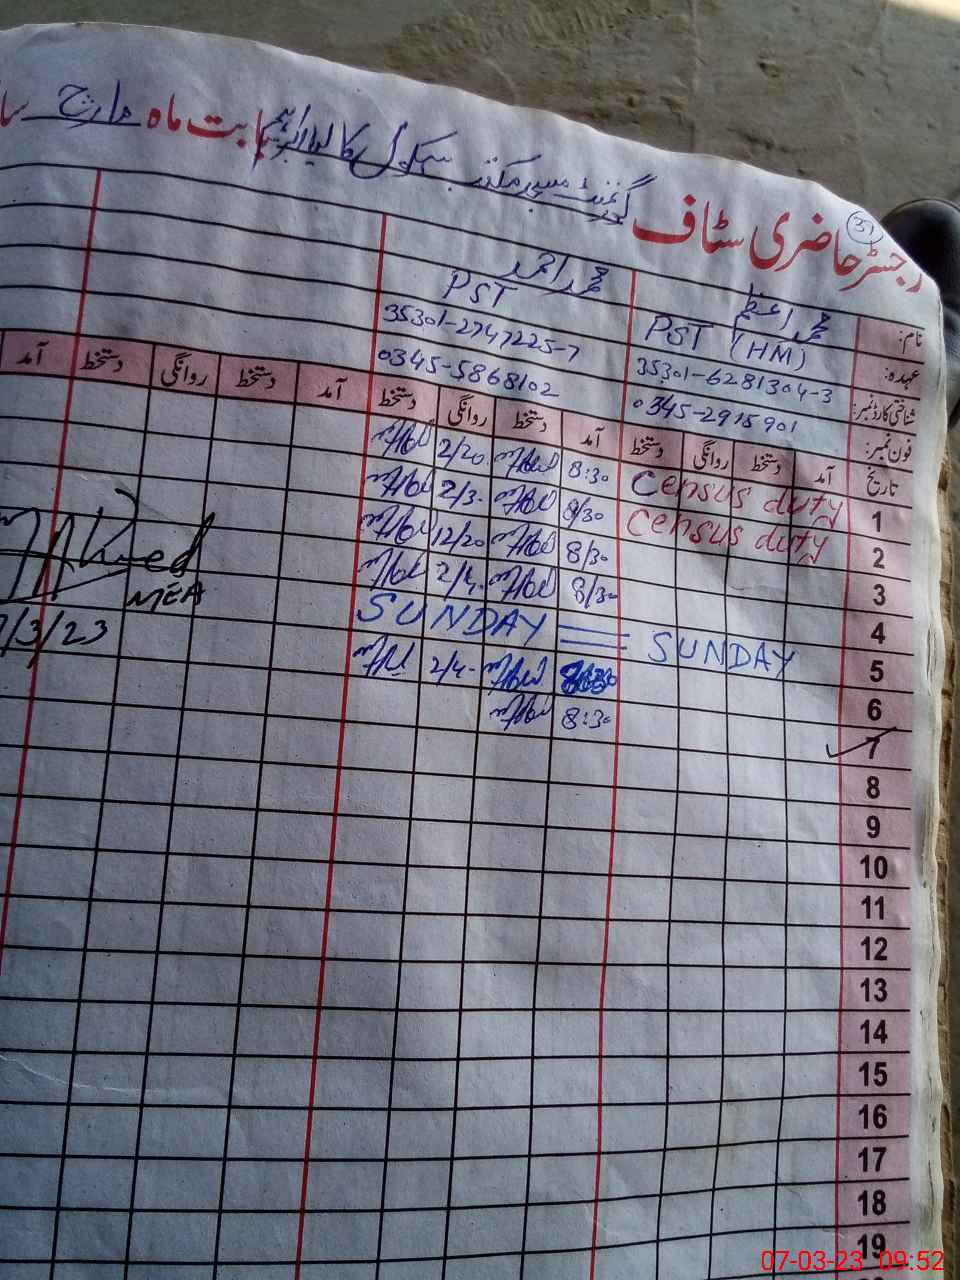 رجسٹر حاضری سٹاف گورنمنٹ مسجد مکتب سکول بابت ماہ مارچ
37
نام: محمد اعظم محمد احمد
عہدہ: PST (HM) PST
شناختی کارڈ نمبر: 35301-6281304-3 35301-2747225-7
فون نمبر: 0345-2915901 0345-5868102
تاریخ آمد دستخط روانگی دستخط آمد دستخط روانگی دستخط آمد دستخط روانگی دستخط آمد
1 Census duty 8:30 2/20
2 Census duty 8/30 2/3
3 8/30 12/20
4 8/30 2/4
5 SUNDAY SUNDAY
6 2/4
7 8:30
MEA
7/3/23
8
9
10
11
12
13
14
15
16
17
18
19
07-03-23 09:52